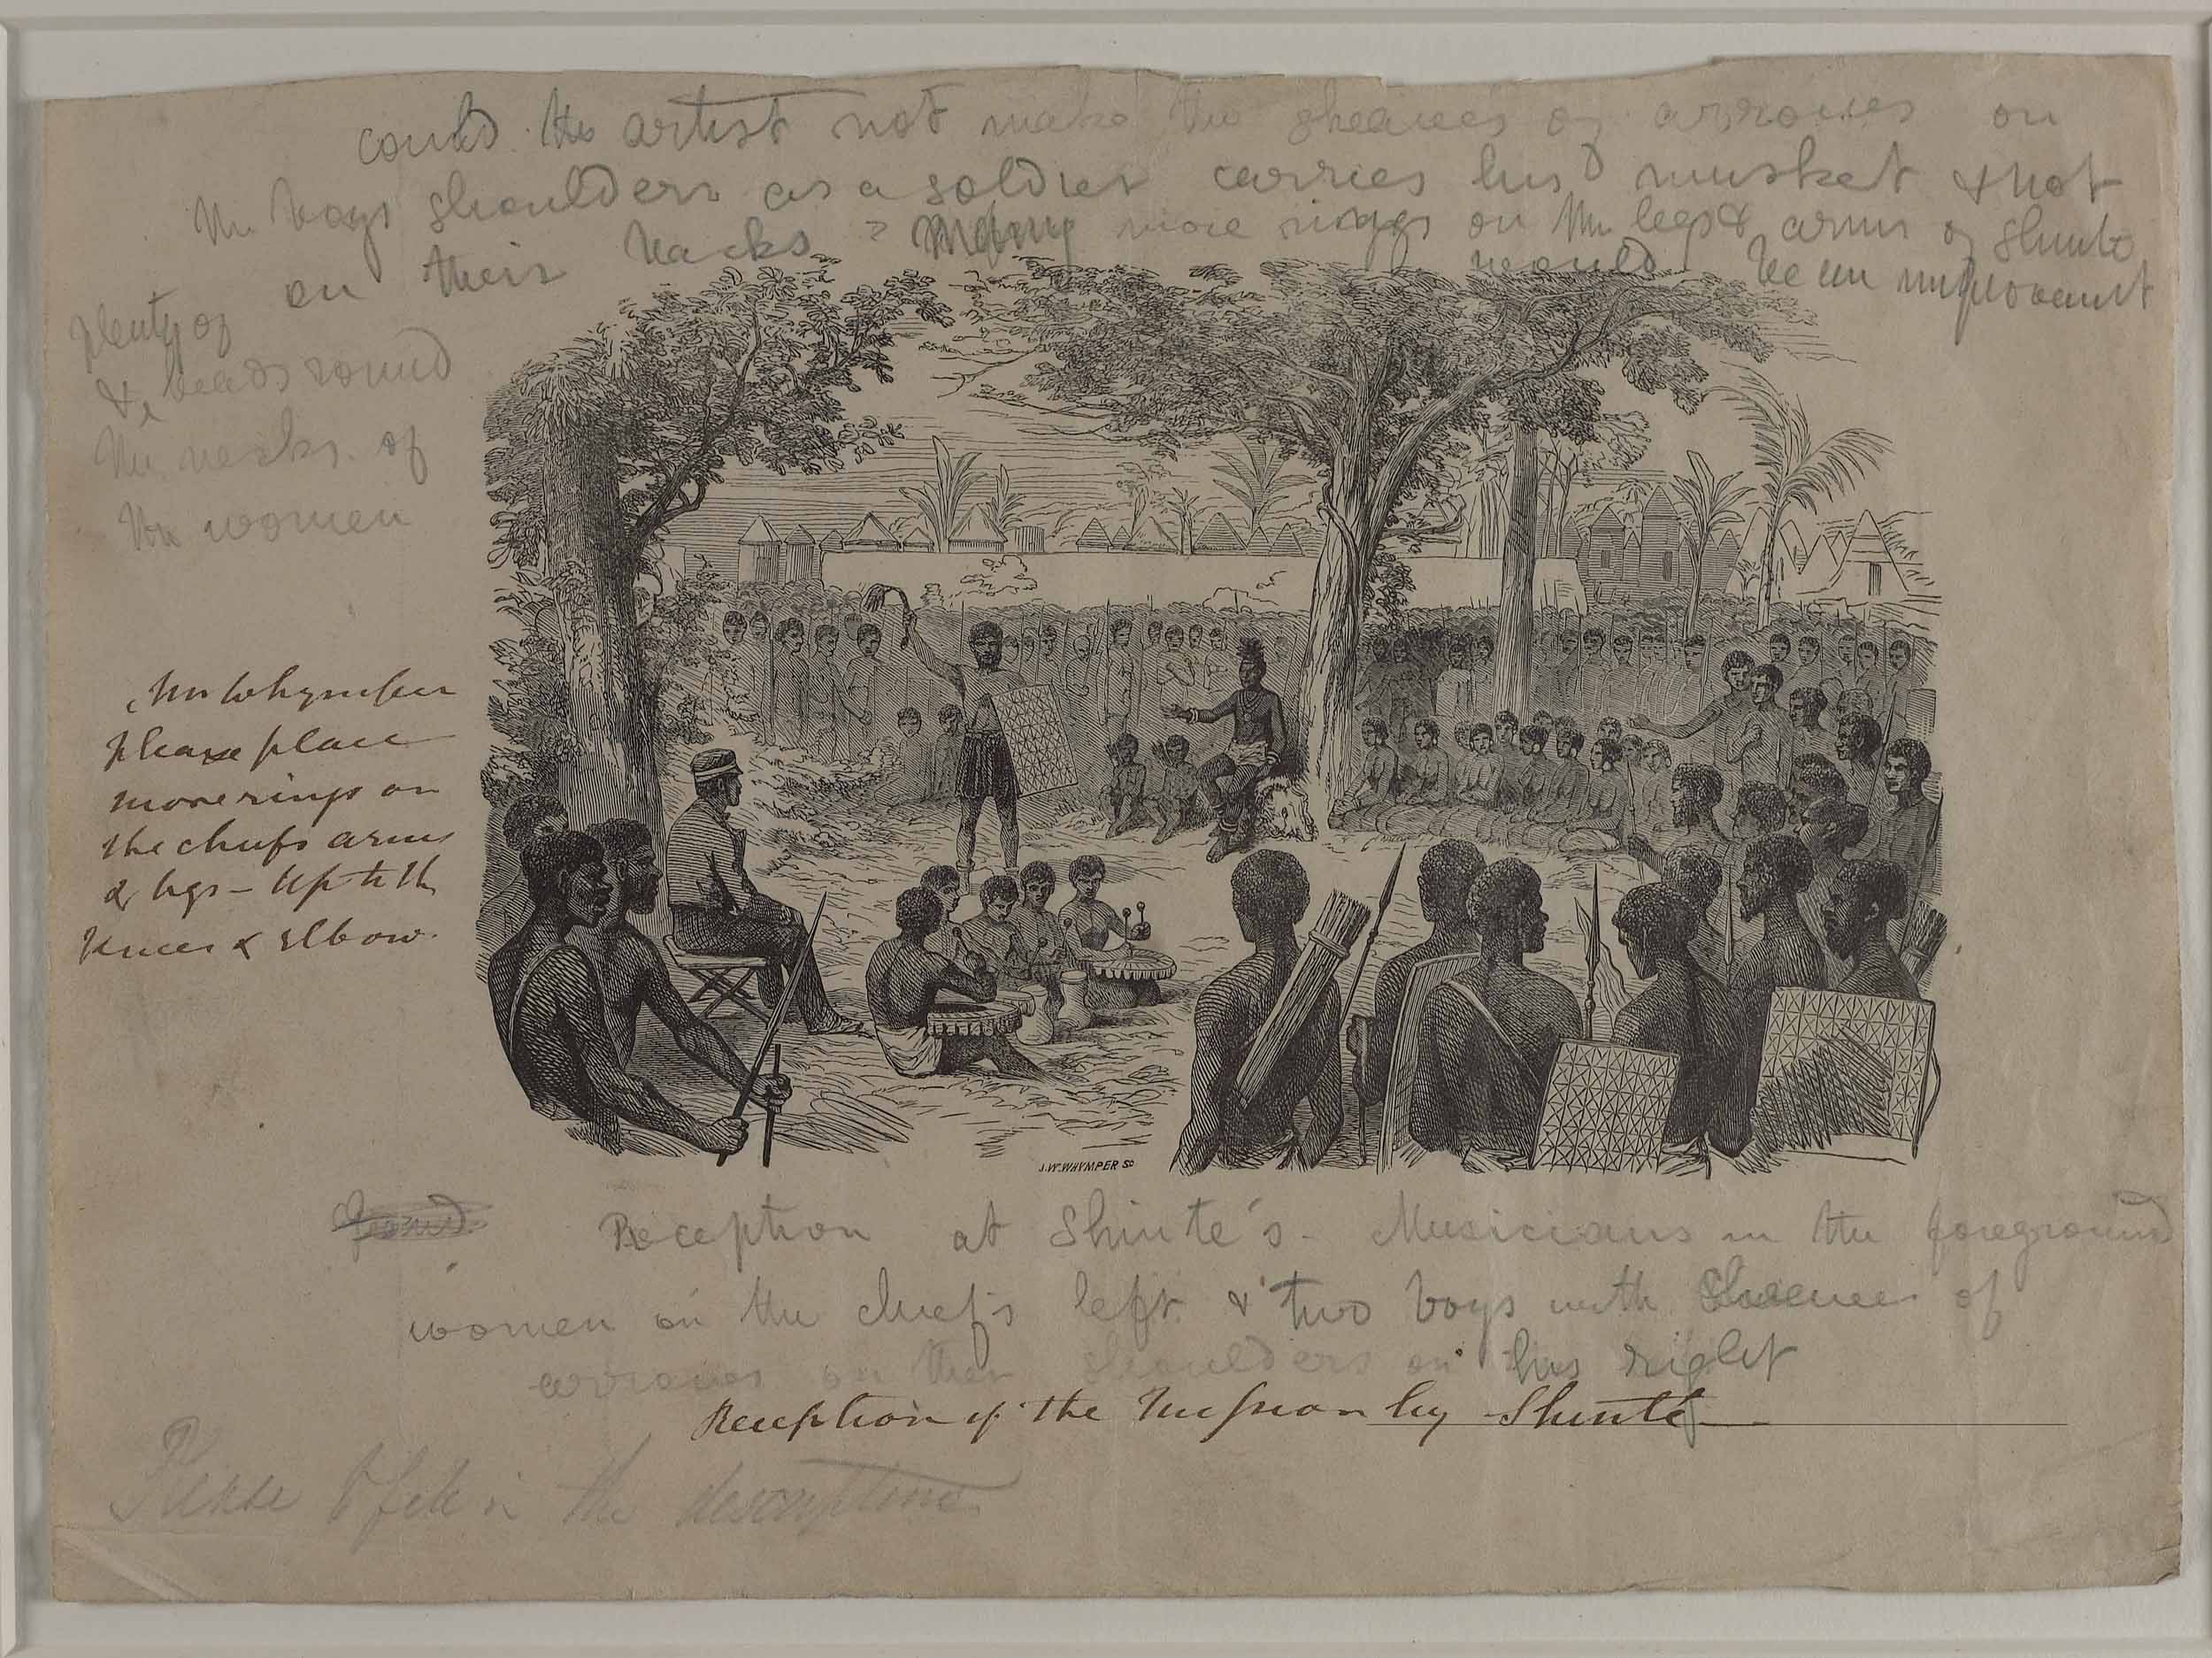 could the artist not make the sheaves of arrowes on
the boys shoulders as a soldier carries his musket & not
on their backs ? Many more rings on the legs & arms of Shinte
would be an improvement
plenty of
& beads round
the necks of
the women
Mr Whymper
please place
more rings on
the chiefs arms
& legs - Up to the
Knees & elbow.
J.W. WHYMPER SC
Reception at Shinte's - Musicians in the foreground
women on the chief's left & two boys with sheaves of
arrowes on their shoulders on his right
Reception of the Mission by Shinté
Please to fill in the descriptions